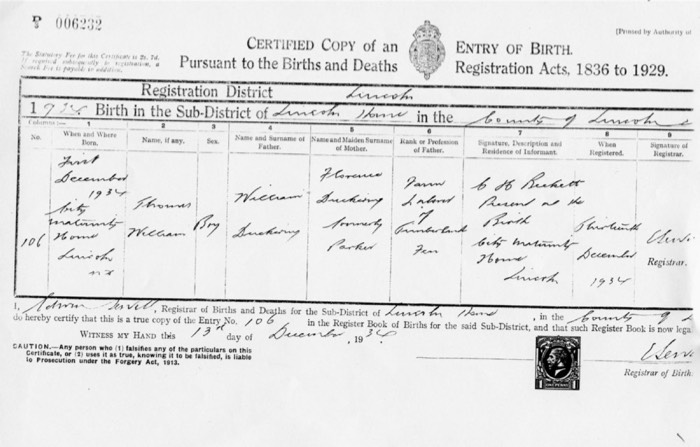 P 006232
CERTIFIED COPY of an ENTRY OF BIRTH.
[Printed by Authority of
The Statutory Fee for this Certificate is 2s. 7d.
Pursuant to the Births and Deaths Registration Acts, 1836 to 1929.
Registration District Lincoln
1934 Birth in the Sub-District of Lincoln Home in the County of Lincoln
Columns:— 1 2 3 4 5 6 7 8 9
No. When and Where Born. Name, if any. Sex. Name and Surname of Father. Name and Maiden Surname of Mother. Rank or Profession of Father. Signature, Description and Residence of Informant. When Registered. Signature of Registrar.
106
First
December
1934
City
Maternity
Home
Lincoln
Thomas
William
Boy
William
Duckering
Florence
Duckering
formerly
Parker
Farm
Labourer
of
Timberland
Fen
C H Beckett
Present at the
Birth
City Maternity
Home
Lincoln
Thirteenth
December
1934
Registrar.
I, , Registrar of Births and Deaths for the Sub-District of Lincoln Home, in the County of L
do hereby certify that this is a true copy of the Entry No. 106 in the Register Book of Births for the said Sub-District, and that such Register Book is now lega
WITNESS MY HAND this 13th day of December, 1934
CAUTION.—Any person who (1) falsifies any of the particulars on this
Certificate, or (2) uses it as true, knowing it to be falsified, is liable
to Prosecution under the Forgery Act, 1913.
Registrar of Birth